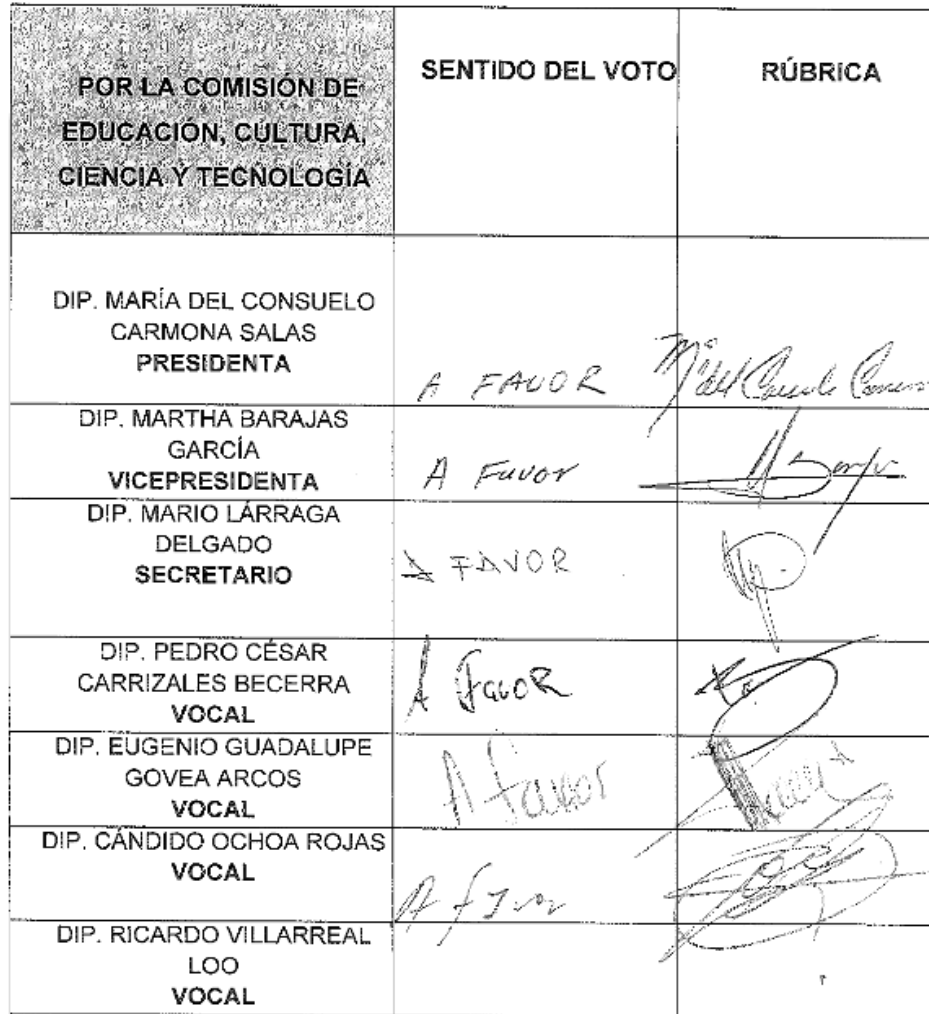 POR LA COMISIÓN DE
EDUCACIÓN, CULTURA,
CIENCIA Y TECNOLOGÍA
SENTIDO DEL VOTO
RÚBRICA
DIP. MARÍA DEL CONSUELO
CARMONA SALAS
PRESIDENTA
A FAVOR
Mª del Consuelo
DIP. MARTHA BARAJAS
GARCÍA
VICEPRESIDENTA
A Favor
DIP. MARIO LÁRRAGA
DELGADO
SECRETARIO
A FAVOR
DIP. PEDRO CÉSAR
CARRIZALES BECERRA
VOCAL
A FavoR
DIP. EUGENIO GUADALUPE
GOVEA ARCOS
VOCAL
A favor
DIP. CÁNDIDO OCHOA ROJAS
VOCAL
A favor
DIP. RICARDO VILLARREAL
LOO
VOCAL